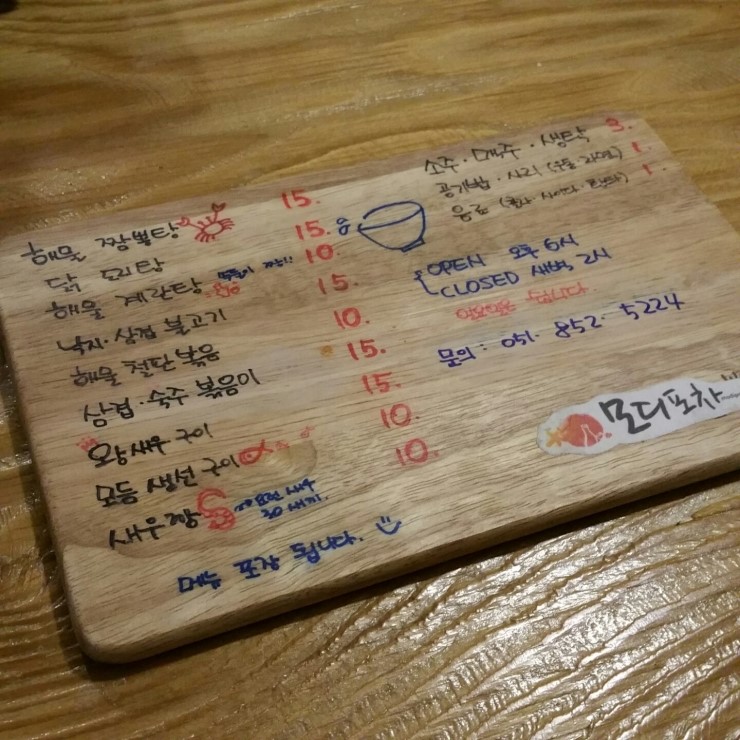 해물 짬뽕탕 15.
닭 도리탕 15.
해물 계란탕 10.
낙지·삼겹 불고기 15.
해물 철판볶음 10.
삼겹·숙주 볶음이 15.
왕새우 구이 15.
모듬 생선 구이 10.
새우깡 10.
30 새끼.
메뉴 포장 됩니다.
소주·맥주·생탁 3.
공기밥·사리 (우동 라면) 1.
음료 (콜라·사이다·환타) 1.
OPEN 오후 6시
CLOSED 새벽 2시
일요일은 쉽니다.
문의 : 051. 852. 5224
모디포차